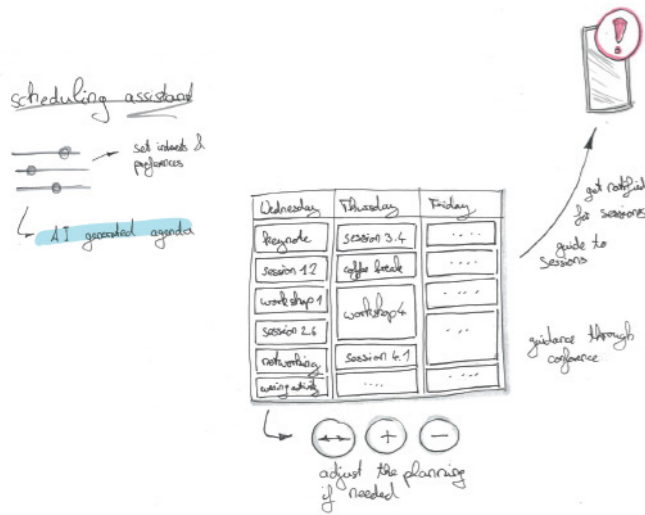 scheduling assistant
set interests &
preferences
AI generated agenda
Wednesday Thursday Friday
keynote session 3.4 ....
session 1.2 coffee break ....
workshop 1 workshop 4 ...
session 2.6 ...
networking session 4.1
evening activity .... ...
adjust the planning
if needed
!
get notified
for sessions
guide to
sessions
guidance through
conference